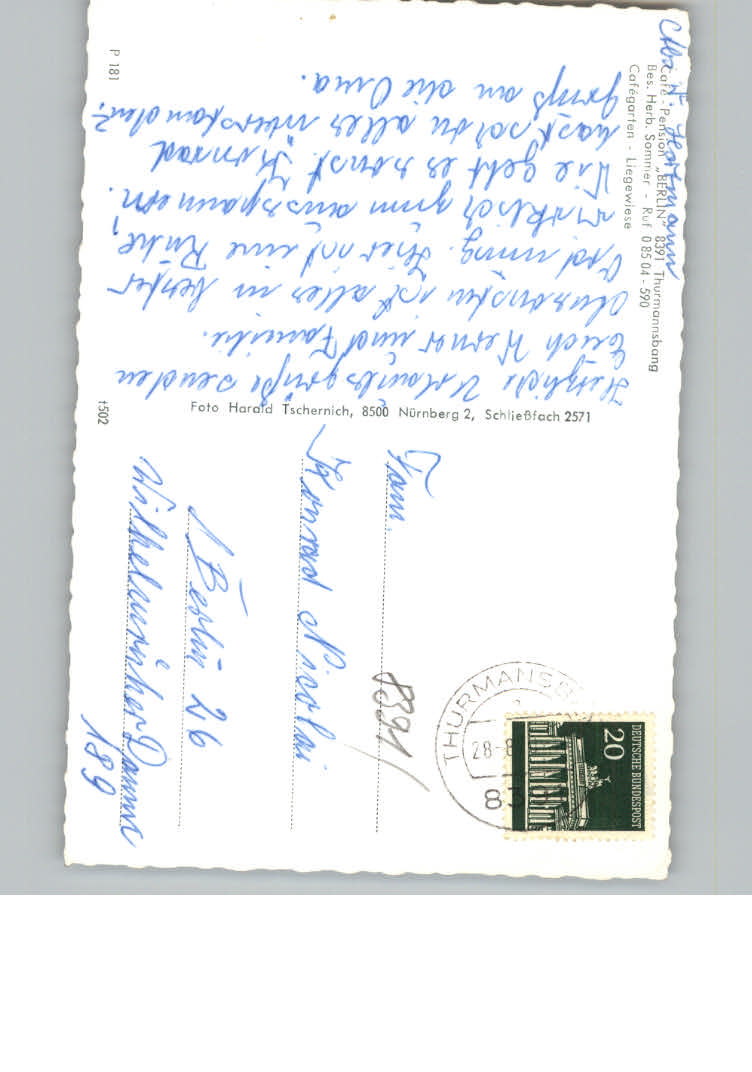 Café - Pension „BERLIN" 8391 Thurmannsbang
Bes. Herb. Sommier - Ruf 0 85 04 - 590
Cafégarten - Liegewiese
W. Hartmann
Herzliche Urlaubsgrüße senden
Euch Werner und Familie.
Ansonsten ist alles in bester
Ordnung. Hier ist eine Ruhe,
wirklich zum ausspannen.
Wie geht es sonst Konrad
hast du alles überstanden?
Gruß an die Oma.
P 181
Foto Harald Tschernich, 8500 Nürnberg 2, Schließfach 2571
t502
Fam.
Konrad Nicolai
1 Berlin 26
Wilhelmsruher Damm
189
8391
THURMANSB
28-8
83
DEUTSCHE BUNDESPOST
20